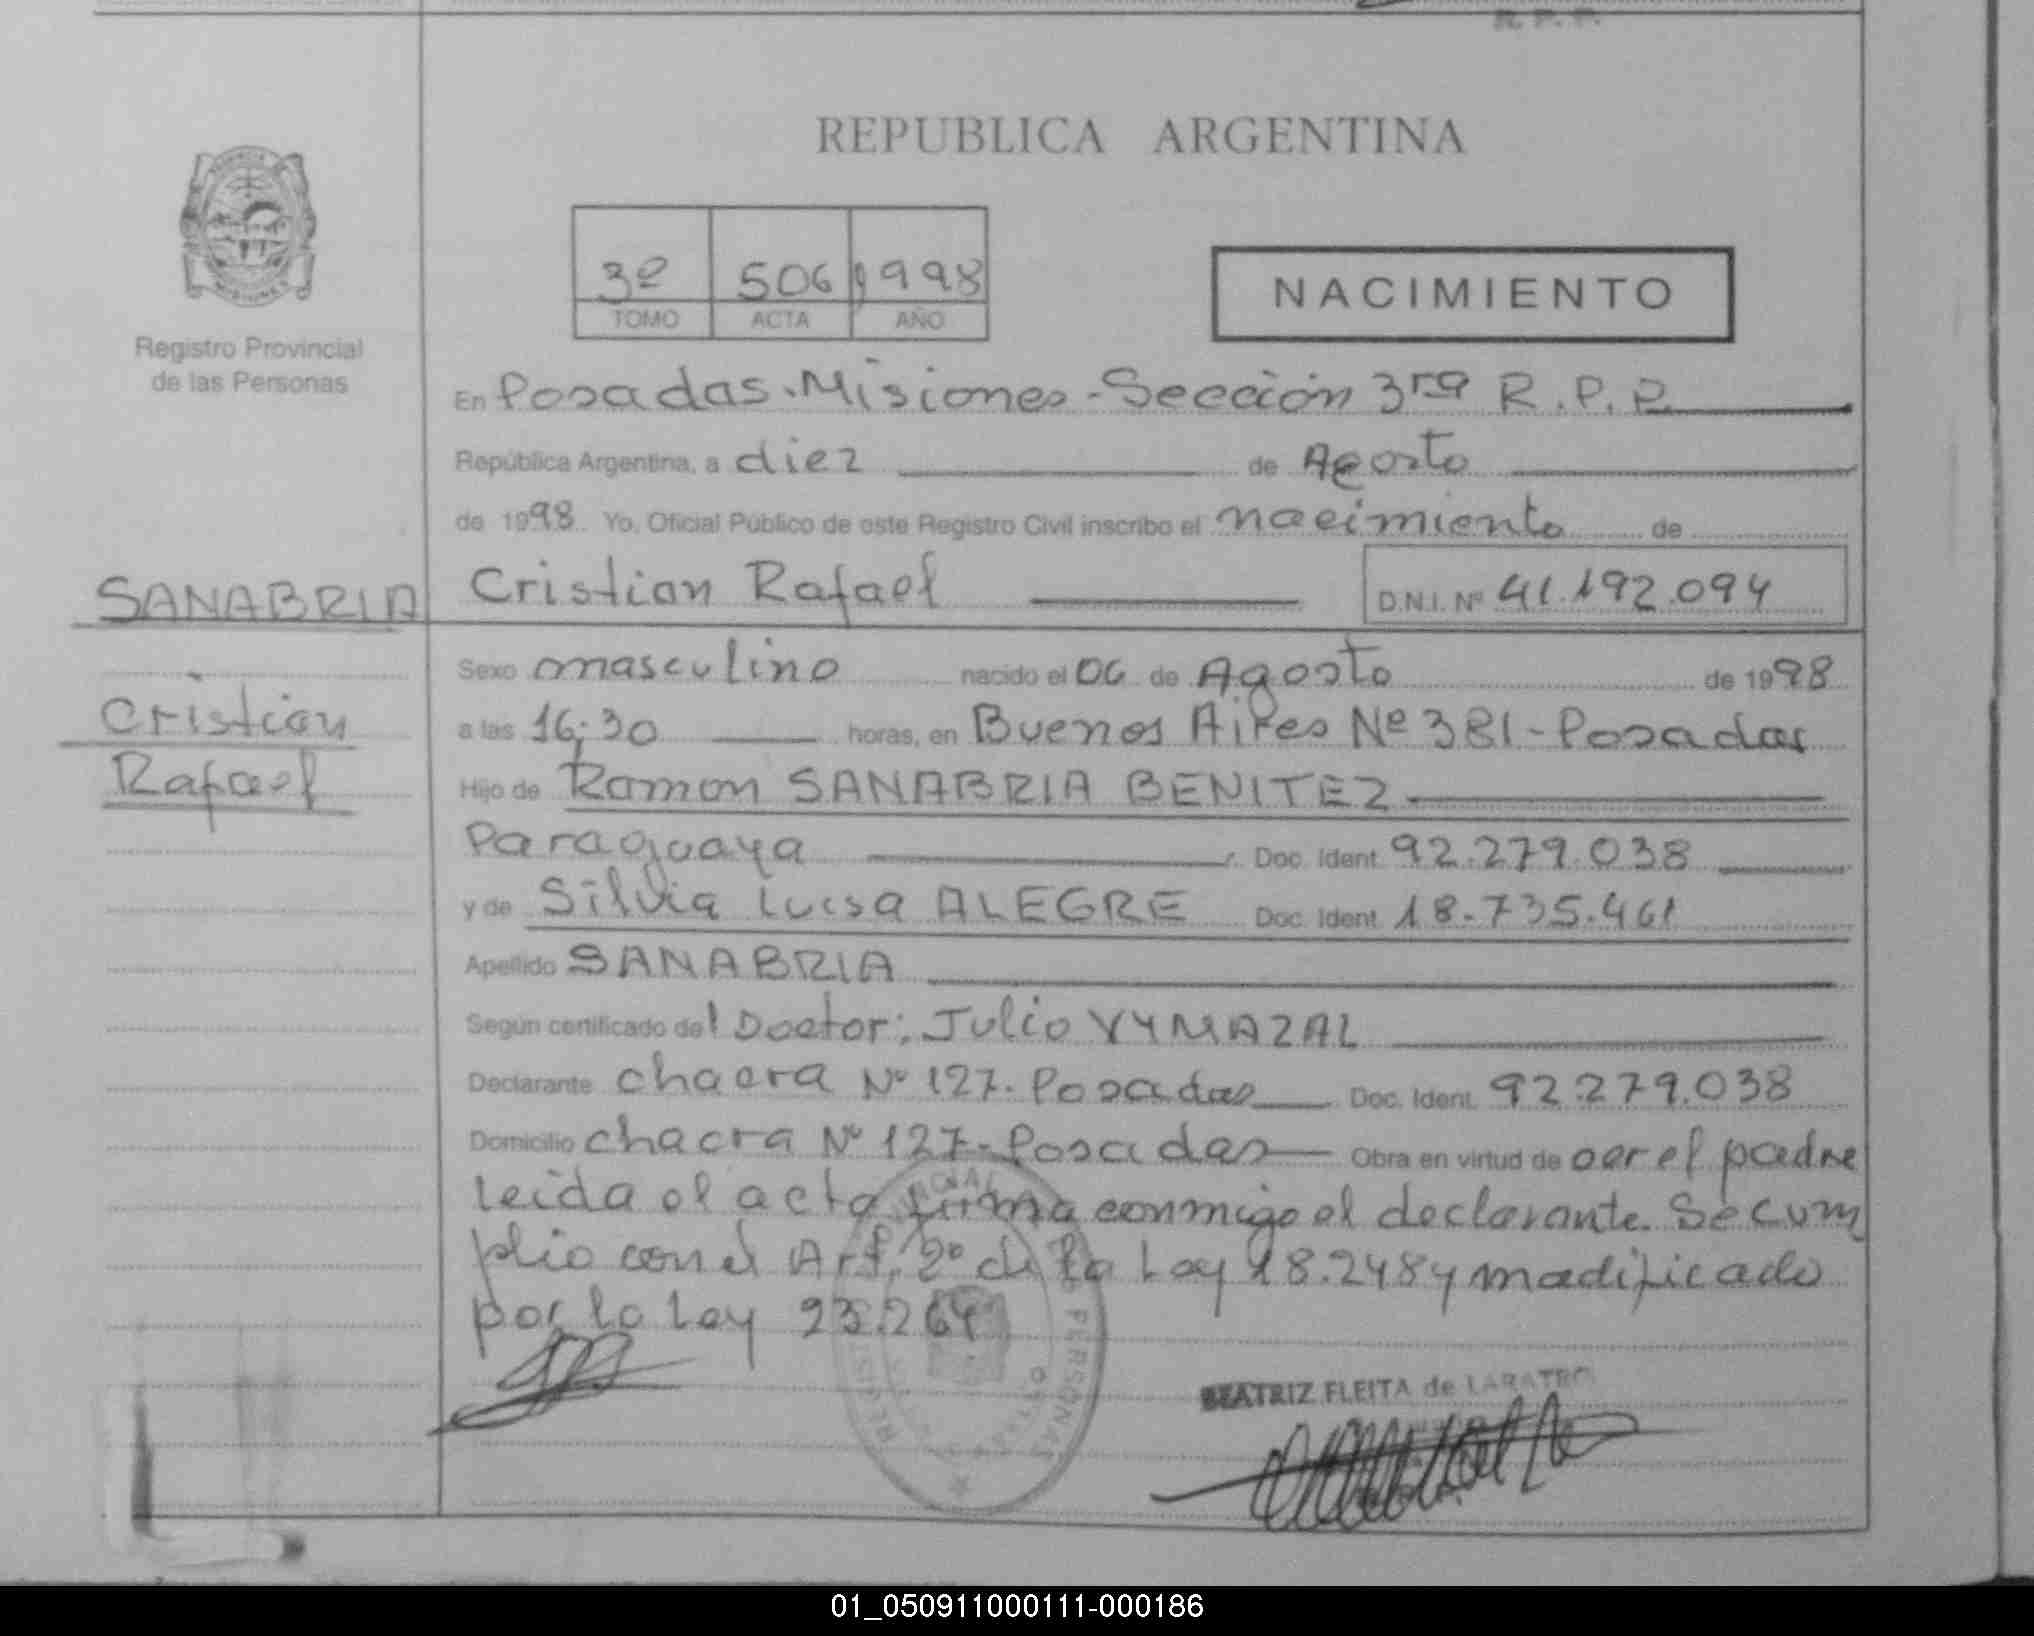 R. P. P.
REPUBLICA ARGENTINA
3º 506 1998
TOMO ACTA AÑO
NACIMIENTO
Registro Provincial
de las Personas
En Posadas-Misiones-Sección 3ra R.P.P.
República Argentina, a diez de Agosto
de 1998 Yo, Oficial Público de este Registro Civil inscribo el nacimiento de
SANABRIA
Cristian Rafael
D.N.I. Nº 41.192.094
Sexo masculino nacido el 06 de Agosto de 1998
Cristian
Rafael
a las 16:30 horas, en Buenos Aires Nº 381-Posadas
Hijo de Ramon SANABRIA BENITEZ
Paraguaya Doc. Ident. 92.279.038
y de Silvia Luisa ALEGRE Doc. Ident. 18.735.461
Apellido SANABRIA
Según certificado del Doctor: Julio VYMAZAL
Declarante chacra Nº 127-Posadas Doc. Ident. 92.279.038
Domicilio chacra Nº 127-Posadas Obra en virtud de ser el padre
leida el acta firma conmigo el declarante. Se cum
plio con el Art. 2º de la Ley 18.248 y modificado
por la Ley 23.264
BEATRIZ FLEITA de LARATRO
REGIST PERSONAS
01_050911000111-000186